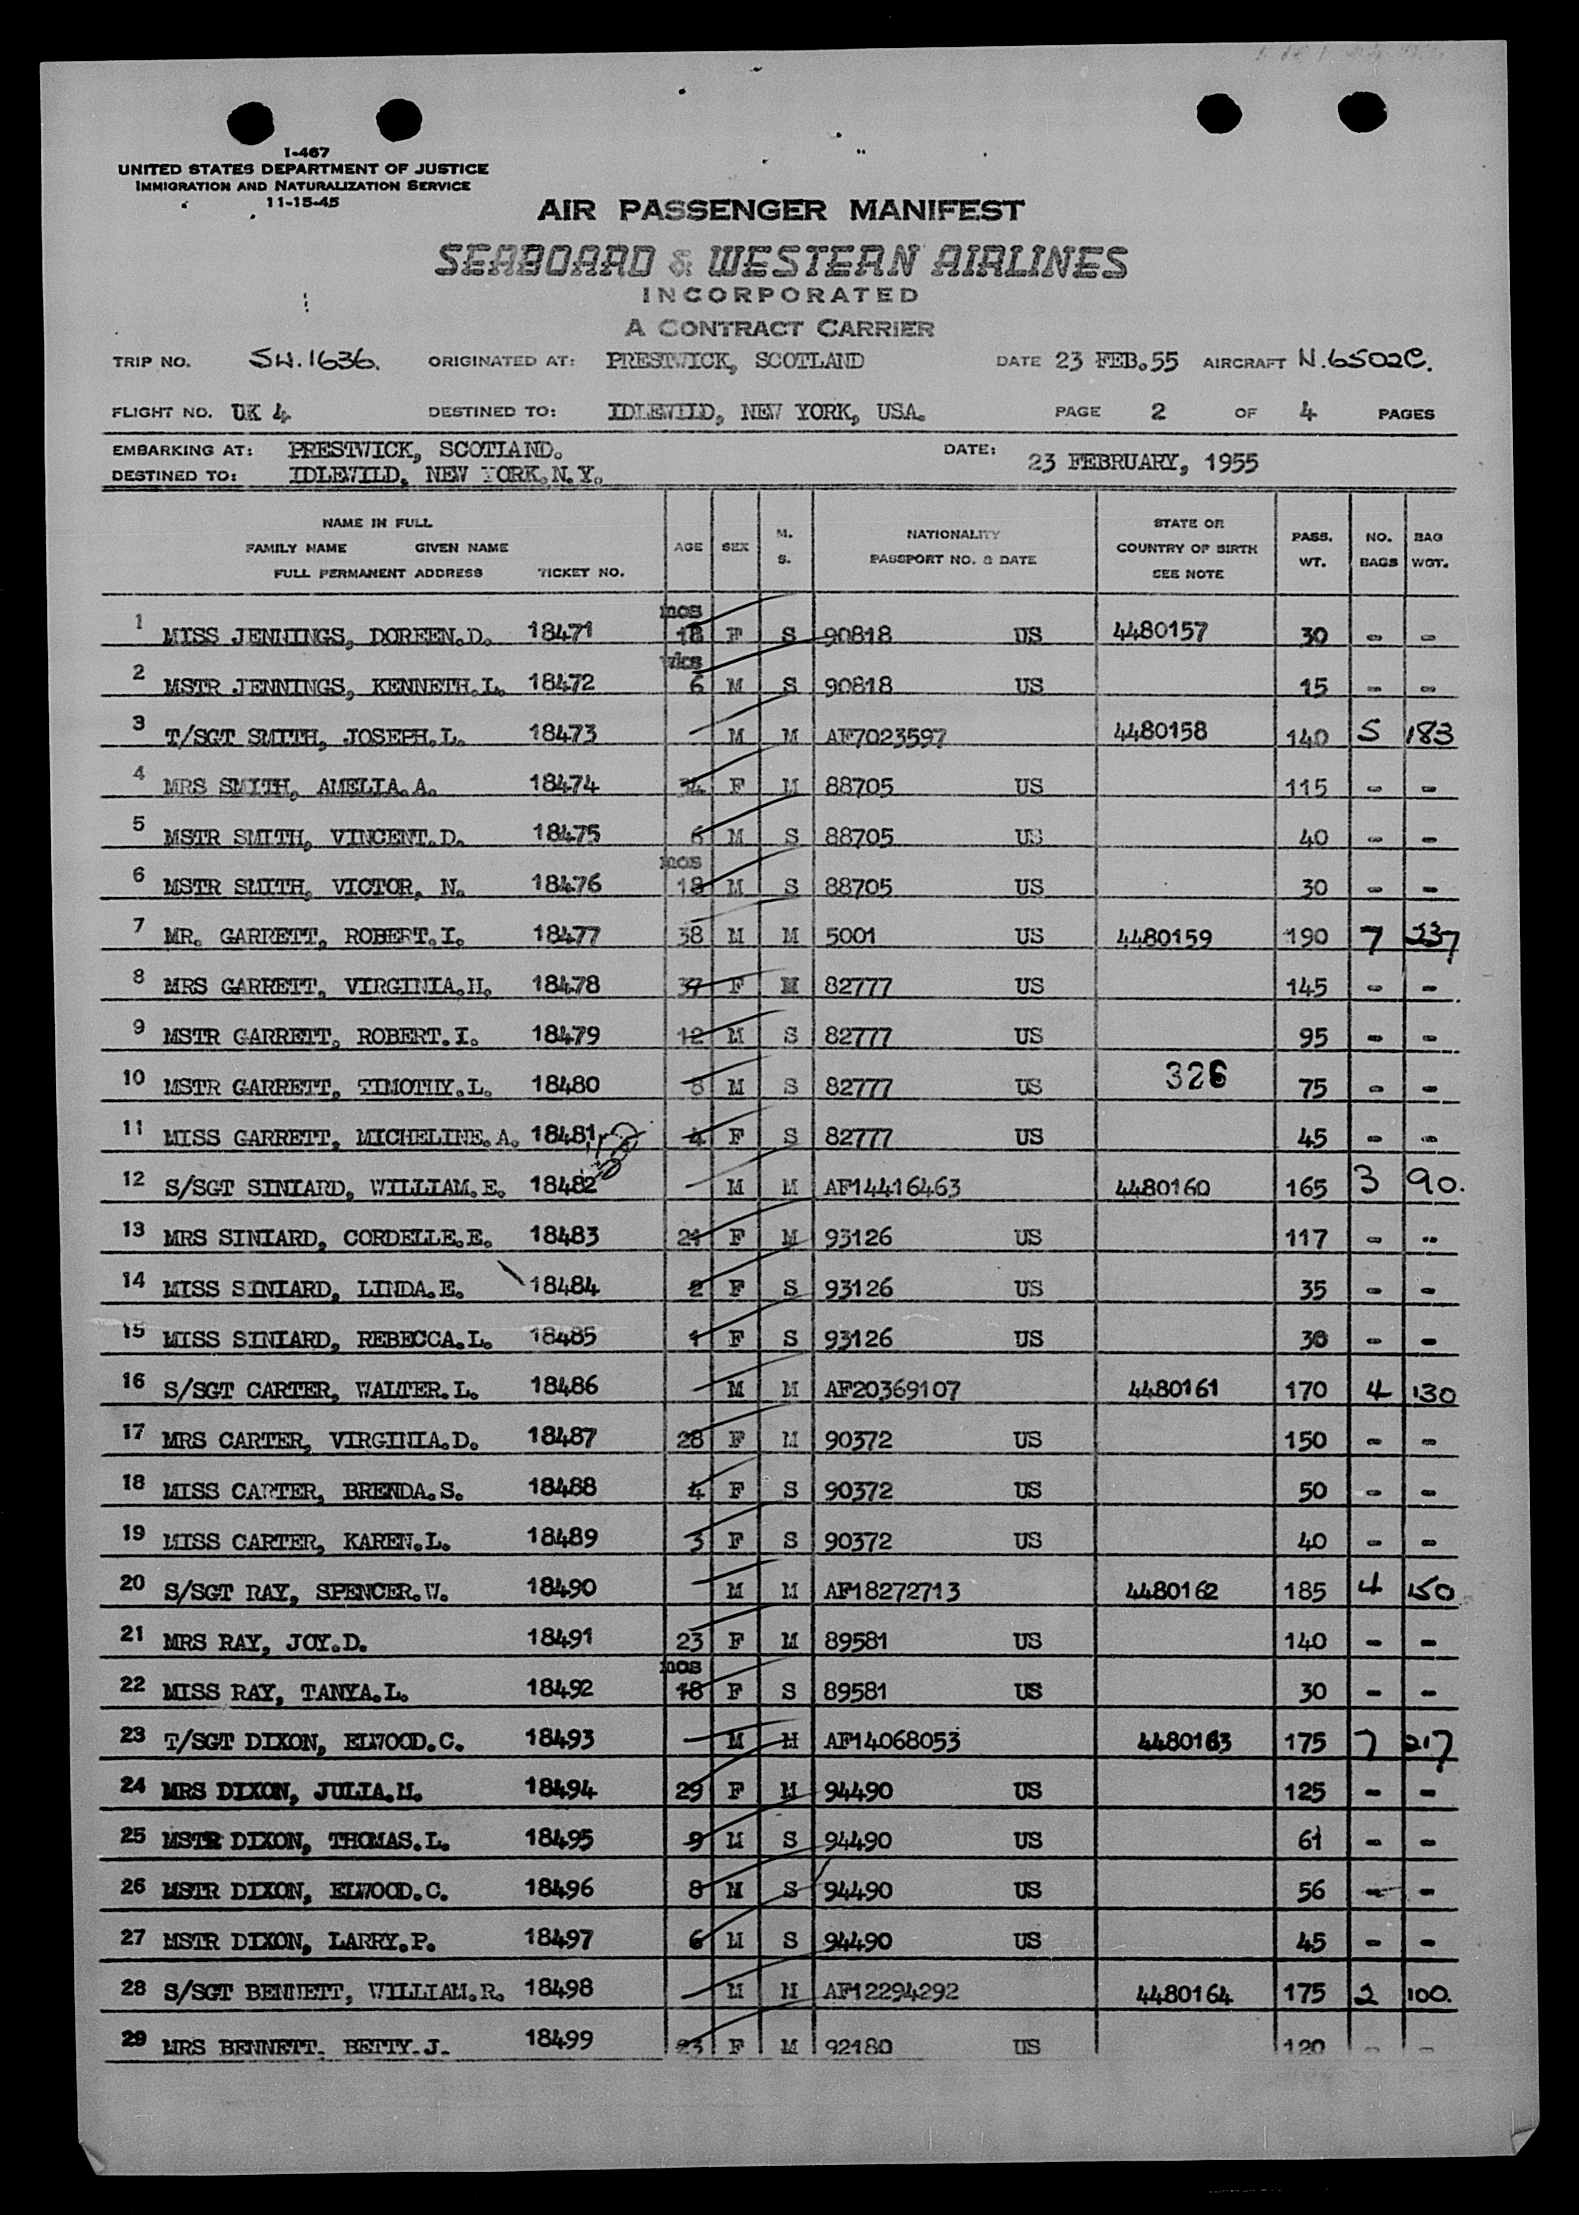 1-467
UNITED STATES DEPARTMENT OF JUSTICE
IMMIGRATION AND NATURALIZATION SERVICE
11-15-45
AIR PASSENGER MANIFEST
SEABOARD & WESTERN AIRLINES
INCORPORATED
A CONTRACT CARRIER
TRIP NO. SW.1636. ORIGINATED AT: PRESTWICK, SCOTLAND DATE 23 FEB.55 AIRCRAFT N.6502C.
FLIGHT NO. UK 4 DESTINED TO: IDLEWILD, NEW YORK, USA. PAGE 2 OF 4 PAGES
EMBARKING AT: PRESTWICK, SCOTLAND. DATE: 23 FEBRUARY, 1955
DESTINED TO: IDLEWILD, NEW YORK.N.Y.
NAME IN FULL FAMILY NAME GIVEN NAME FULL PERMANENT ADDRESS TICKET NO. AGE SEX M. S. NATIONALITY PASSPORT NO. & DATE STATE OR COUNTRY OF BIRTH SEE NOTE PASS. WT. NO. BAGS BAG WGT.
1 MISS JENNINGS, DOREEN.D. 18471 mos 18 F S 90818 US 4480157 30 - -
2 MSTR JENNINGS, KENNETH.L. 18472 wks 6 M S 90818 US 15 - -
3 T/SGT SMITH, JOSEPH.L. 18473 M M AF7023597 4480158 140 5 183
4 MRS SMITH, AMELIA.A. 18474 F M 88705 US 115 - -
5 MSTR SMITH, VINCENT.D. 18475 6 M S 88705 US 40 - -
6 MSTR SMITH, VICTOR, N. 18476 mos 18 M S 88705 US 30 - -
7 MR. GARRETT, ROBERT.I. 18477 38 M M 5001 US 4480159 190 7 237
8 MRS GARRETT, VIRGINIA.H. 18478 37 F M 82777 US 145 - -
9 MSTR GARRETT, ROBERT.I. 18479 12 M S 82777 US 95 - -
10 MSTR GARRETT, TIMOTHY.L. 18480 8 M S 82777 US 326 75 - -
11 MISS GARRETT, MICHELINE.A. 18481 4 F S 82777 US 45 - -
12 S/SGT SINIARD, WILLIAM.E. 18482 M M AF14416463 4480160 165 3 90.
13 MRS SINIARD, CORDELLE.E. 18483 21 F M 93126 US 117 - -
14 MISS SINIARD, LINDA.E. 18484 2 F S 93126 US 35 - -
15 MISS SINIARD, REBECCA.L. 18485 1 F S 93126 US 30 - -
16 S/SGT CARTER, WALTER.L. 18486 M M AF20369107 4480161 170 4 130
17 MRS CARTER, VIRGINIA.D. 18487 28 F M 90372 US 150 - -
18 MISS CARTER, BRENDA.S. 18488 4 F S 90372 US 50 - -
19 MISS CARTER, KAREN.L. 18489 3 F S 90372 US 40 - -
20 S/SGT RAY, SPENCER.W. 18490 M M AF18272713 4480162 185 4 150
21 MRS RAY, JOY.D. 18491 23 F M 89581 US 140 - -
22 MISS RAY, TANYA.L. 18492 mos 18 F S 89581 US 30 - -
23 T/SGT DIXON, ELWOOD.C. 18493 M M AF14068053 4480163 175 7 217
24 MRS DIXON, JULIA.M. 18494 29 F M 94490 US 125 - -
25 MSTR DIXON, THOMAS.L. 18495 9 M S 94490 US 61 - -
26 MSTR DIXON, ELWOOD.C. 18496 8 M S 94490 US 56 - -
27 MSTR DIXON, LARRY.P. 18497 6 M S 94490 US 45 - -
28 S/SGT BENNETT, WILLIAM.R. 18498 M M AF12294292 4480164 175 2 100.
29 MRS BENNETT. BETTY.J. 18499 23 F M 92180 US 120 - -